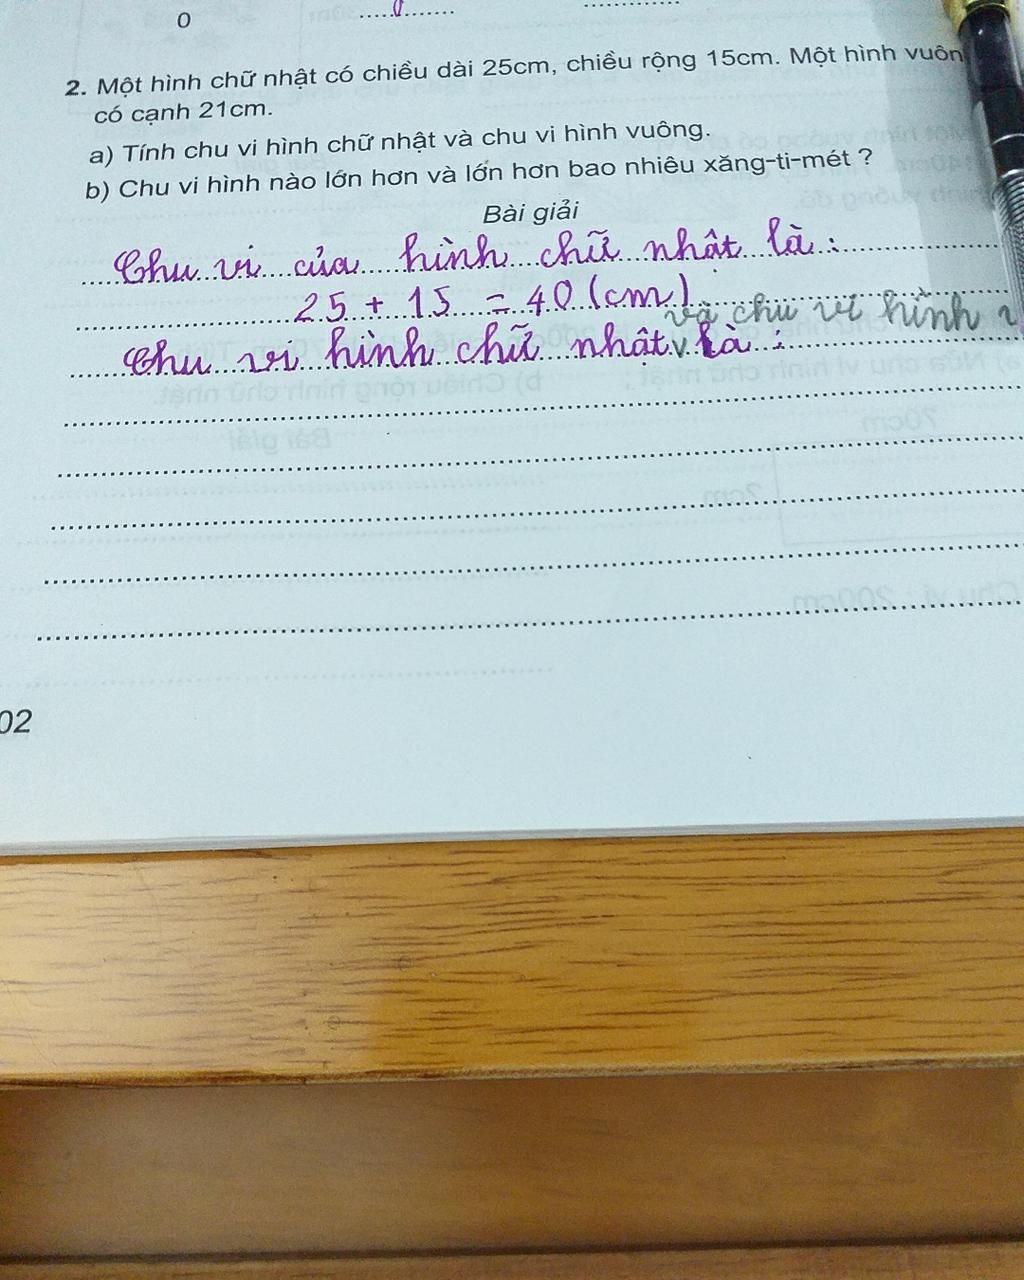 0
2. Một hình chữ nhật có chiều dài 25cm, chiều rộng 15cm. Một hình vuôn
có cạnh 21cm.
a) Tính chu vi hình chữ nhật và chu vi hình vuông.
b) Chu vi hình nào lớn hơn và lớn hơn bao nhiêu xăng-ti-mét ?
Bài giải
Chu vi của hình chữ nhật là :
25 + 15 = 40 (cm)
và chu vi hình
Chu vi hình chữ nhật v là :
02